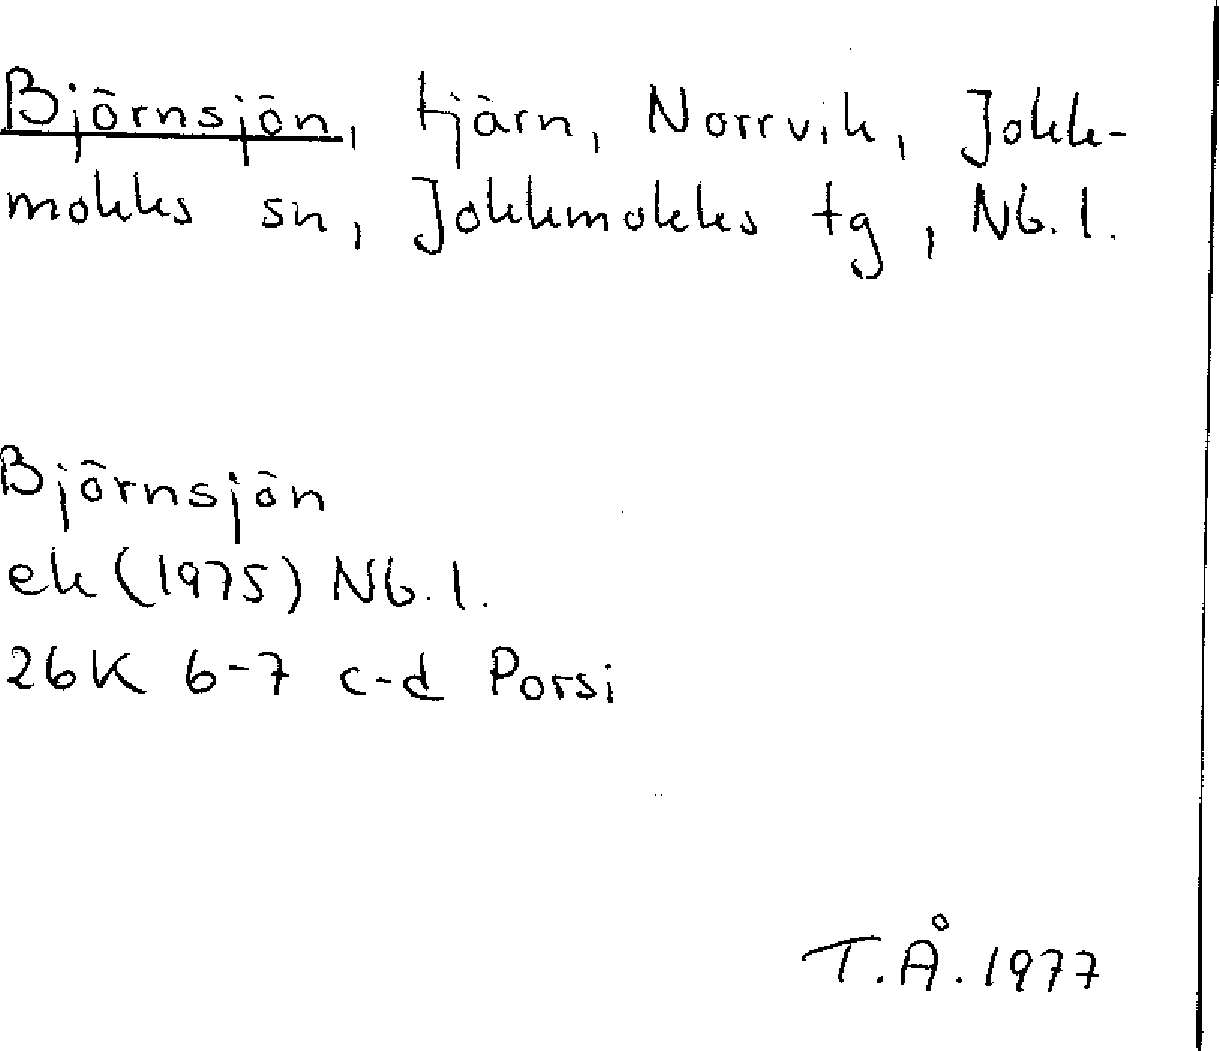 Björnsjön, tjärn, Norrvik, Jokk-
mokks sn, Jokkmokks tg, Nb. l.
Björnsjön
ek (1975) Nb. l.
26K 6-7 c-d Porsi
T.Å. 1977